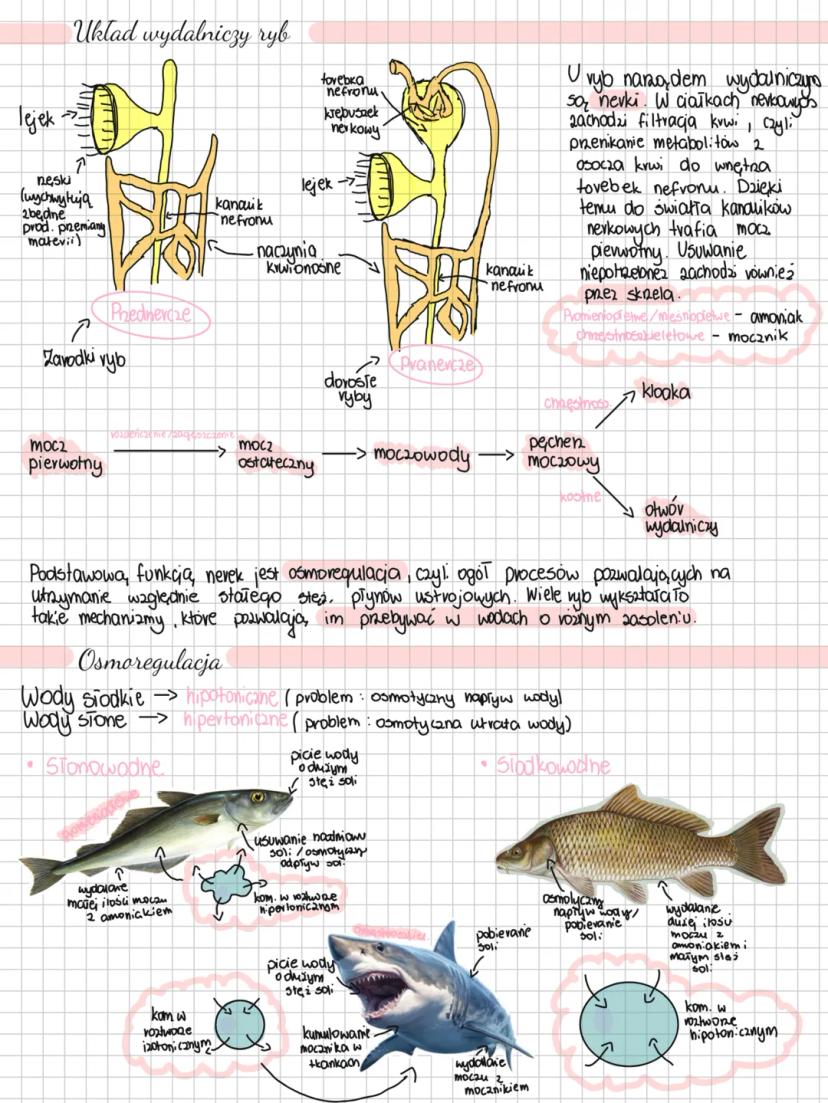 Układ wydalniczy ryb
lejek
rzęski
(wychwytują
zbędne
prod. przemiany
materii)
kanalik
nefronu
naczynia
krwionośne
Przednercze
Zarodki ryb
torebka
nefronu
kłębuszek
nerkowy
lejek
kanalik
nefronu
Pranercze
dorosłe
ryby
U ryb narządem wydalniczym
są nerki. W ciałkach nerkowych
zachodzi filtracja krwi, czyli
przenikanie metabolitów z
osocza krwi do wnętrza
torebek nefronu. Dzięki
temu do światła kanalików
nerkowych trafia mocz
pierwotny. Usuwanie
niepotrzebnez zachodzi również
przez skrzela.
Promieniopłetwe/mięśniopłetwe - amoniak
chrzęstnoszkieletowe - mocznik
mocz
pierwotny
rozcieńczenie/zagęszczenie
mocz
ostateczny
moczowody
pęcherz
moczowy
chrzęstnosz.
kloaka
kostne
otwór
wydalniczy
Podstawową funkcją nerek jest osmoregulacja, czyli ogół procesów pozwalających na
utrzymanie względnie stałego stęż. płynów ustrojowych. Wiele ryb wykształciło
takie mechanizmy, które pozwalają im przebywać w wodach o różnym zasoleniu.
Osmoregulacja
Wody słodkie → hipotoniczne ( problem : osmotyczny napływ wody)
Wody słone → hipertoniczne ( problem : osmotyczna utrata wody)
• Słonowodne
picie wody
o dużym
stęż soli
usuwanie nadmiaru
soli / osmotyczny
odpływ sol.
wydalanie
małej ilości moczu
z amoniakiem
kom. w roztworze
hipertonicznym
• Słodkowodne
osmotyczny
napływ wody/
pobieranie
soli
wydalanie
dużej ilości
moczu z
amoniakiem i
małym stęż
soli
kom. w
roztworze
hipotonicznym
pobieranie
soli
picie wody
o dużym
stęż soli
kumulowanie
mocznika w
tkankach
wydalanie
moczu z
mocznikiem
kom. w
roztworze
izotonicznym